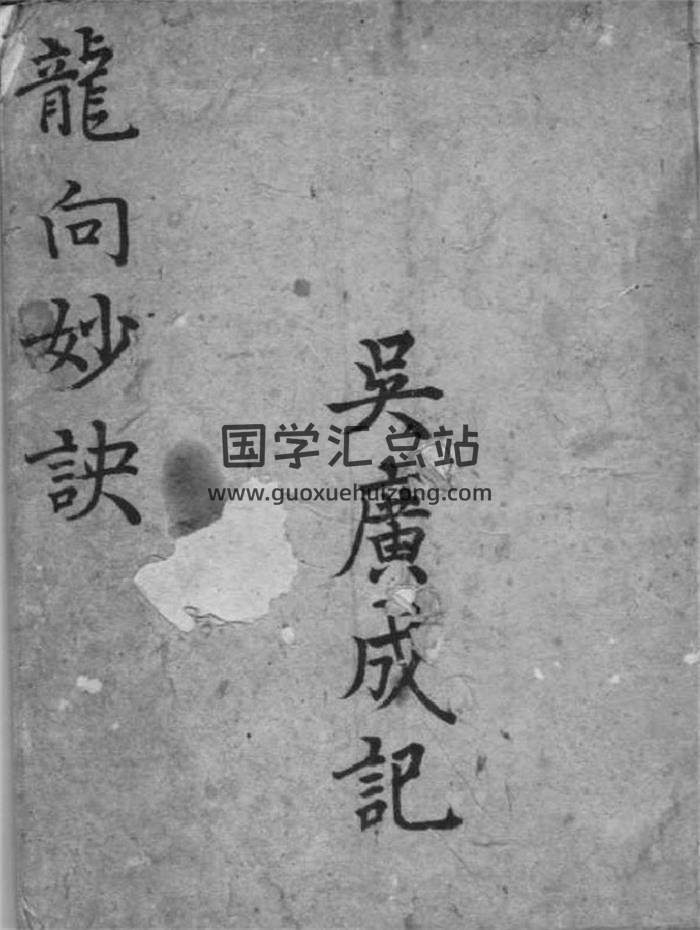 龍向妙訣
吳廣成記
国学汇总站
www.guoxuehuizong.com